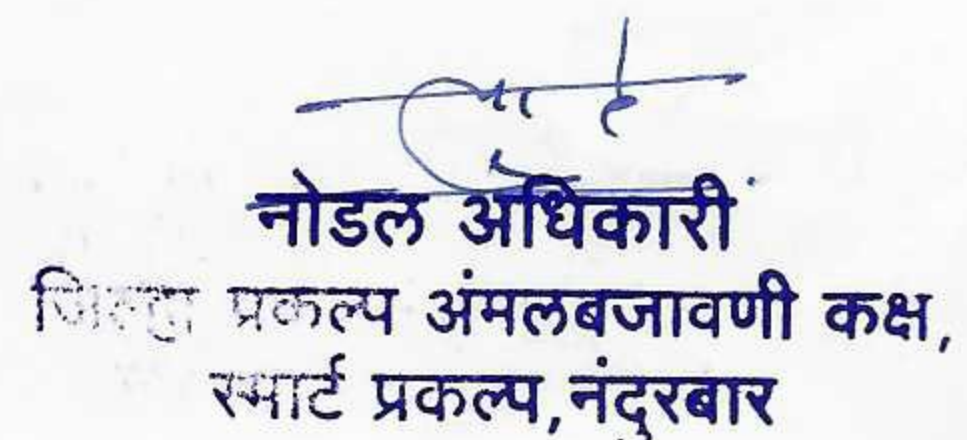 नोडल अधिकारी
जिल्हा प्रकल्प अंमलबजावणी कक्ष,
स्मार्ट प्रकल्प,नंदुरबार